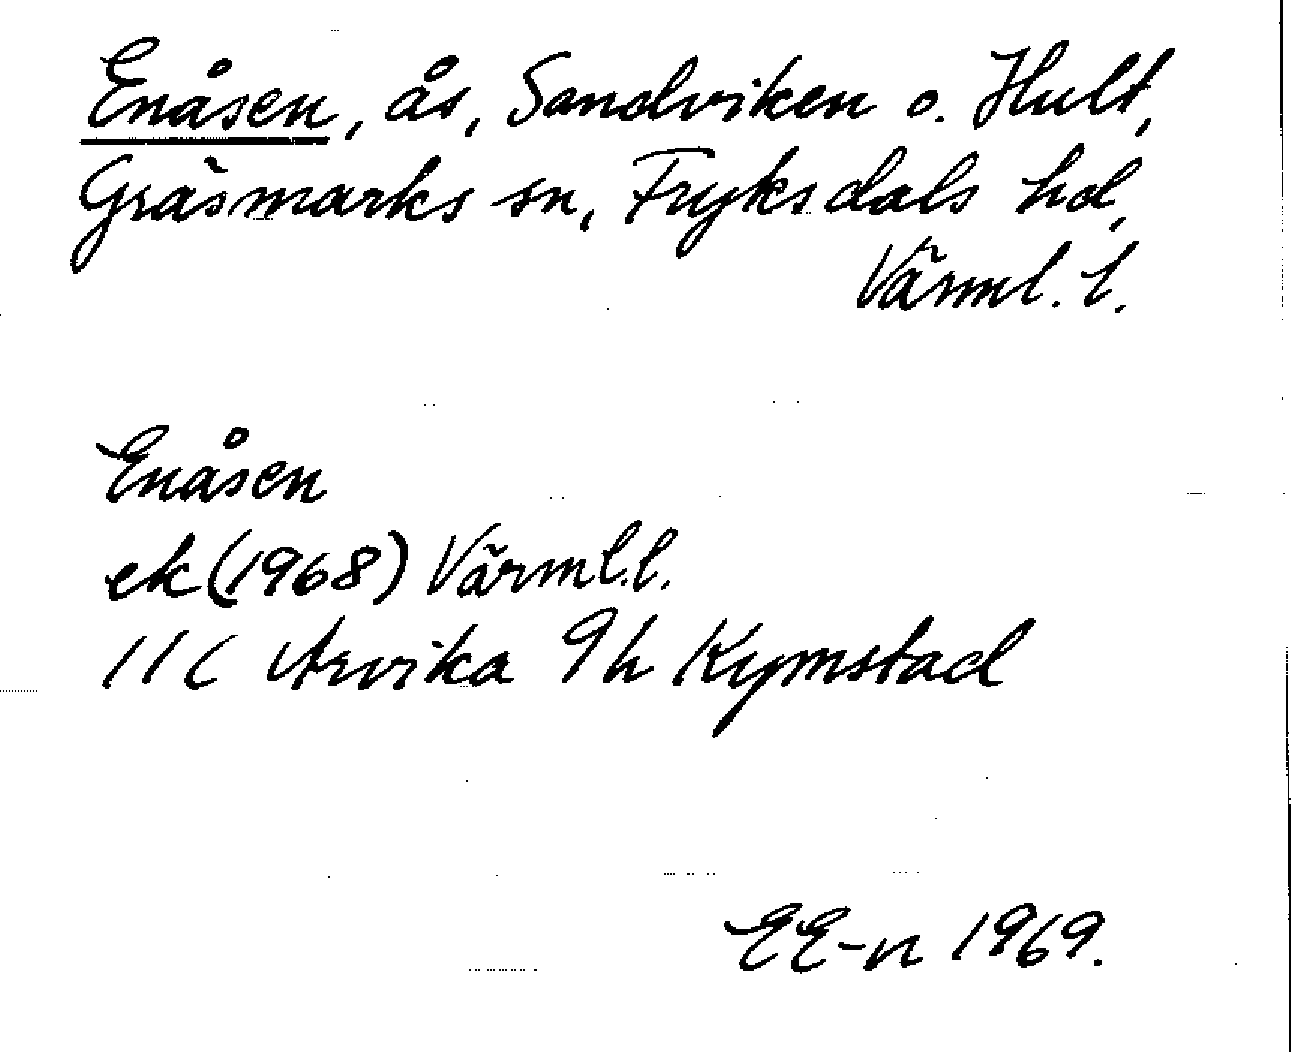 Enåsen, ås, Sandviken o. Hult,
Gräsmarks sn, Fryksdals hd,
Värml. l.
Enåsen
ek (1968) Värml.l.
11C Arvika 9h Kymstad
EE-n 1969.